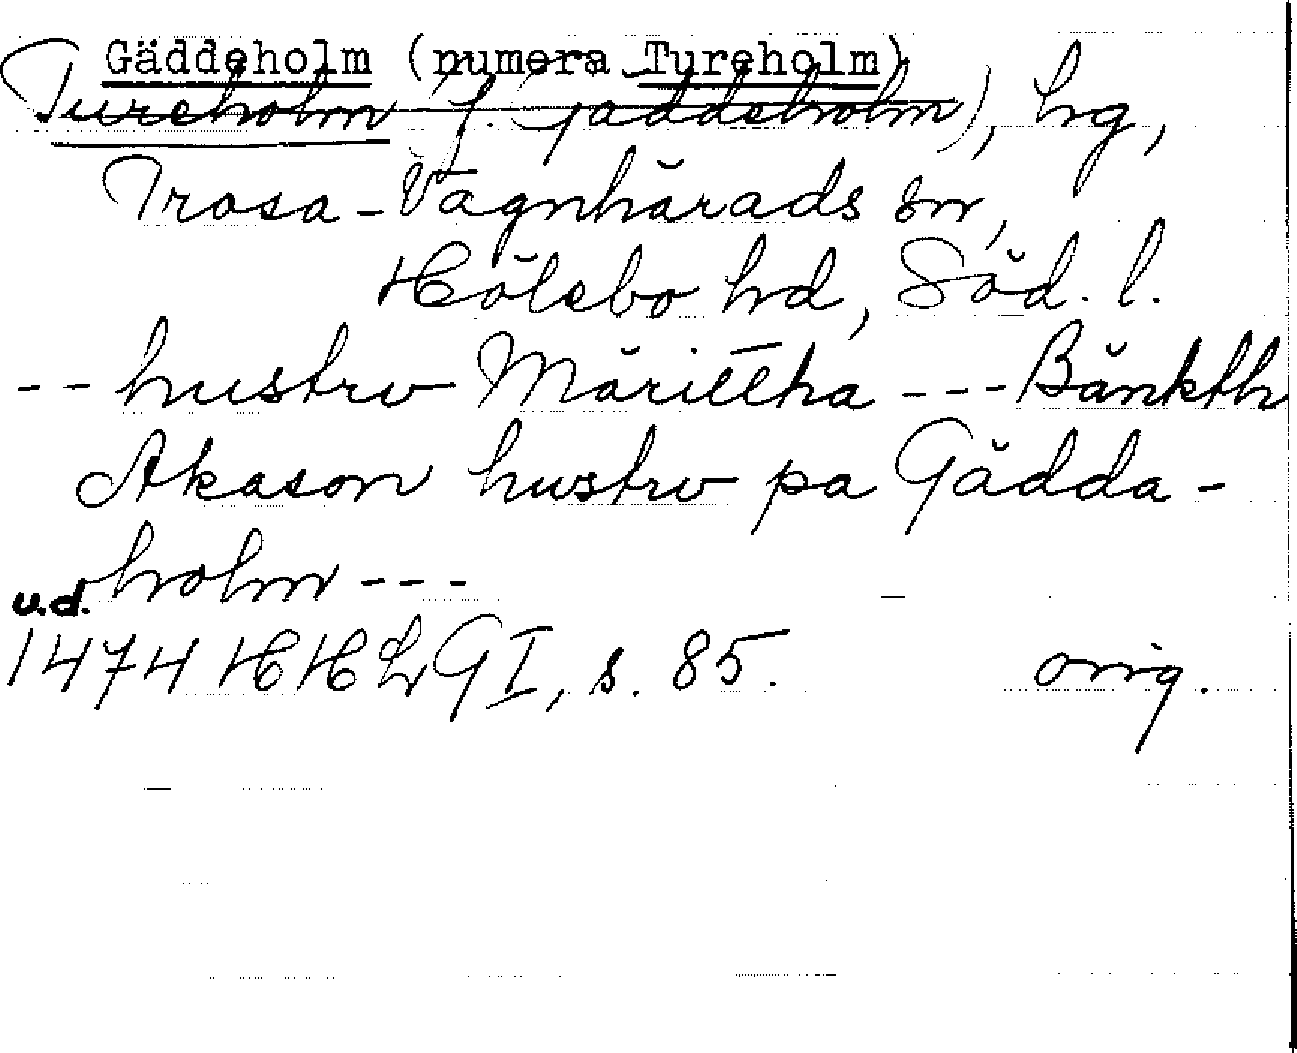 Gäddeholm (numera Tureholm)
Tureholm (f. Gäddeholm), hg,
Trosa-Vagnhärads sn,
Hölebo hd, Söd. l.
-- hustrv Märittha --- Bänkth
Akason hustrv pa Gädda-
holm ---
u.d.
1474 HHLGI, s. 85. orig.